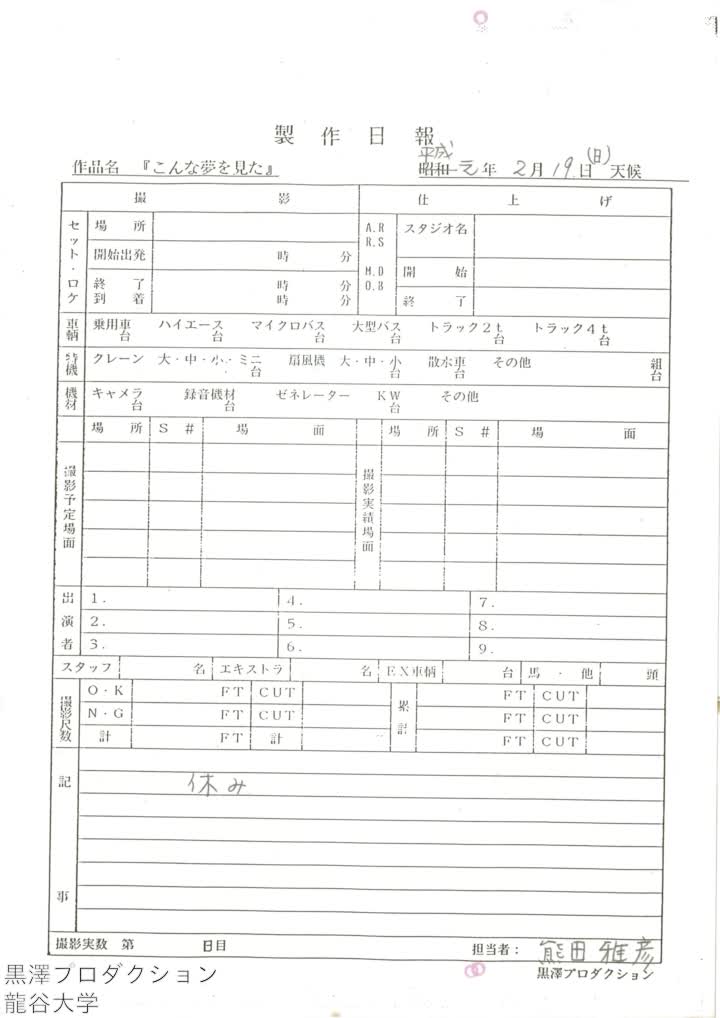 製作日報
作品名 『こんな夢を見た』 平成 昭和 元年 2月19日(日) 天候
撮影 仕上げ
セット・ロケ 場所 A.R R.S スタジオ名
開始出発 時 分
終了 時 分 M.D O.B 開始
到着 時 分 終了
車輌 乗用車 台 ハイエース 台 マイクロバス 台 大型バス 台 トラック2t 台 トラック4t 台
特機 クレーン 大・中・小・ミニ 台 扇風機 大・中・小 台 散水車 台 その他 組 台
機材 キャメラ 台 録音機材 台 ゼネレーター KW 台 その他
場所 S# 場面 場所 S# 場面
撮影予定場面 撮影実績場面
出演者 1. 4. 7.
2. 5. 8.
3. 6. 9.
スタッフ 名 エキストラ 名 EX車輌 台 馬・他 頭
撮影尺数 O・K FT CUT 累計 FT CUT
N・G FT CUT FT CUT
計 FT 計 FT CUT
記事
休み
撮影実数 第 日目 担当者: 熊田雅彦
黒澤プロダクション
黒澤プロダクション
龍谷大学